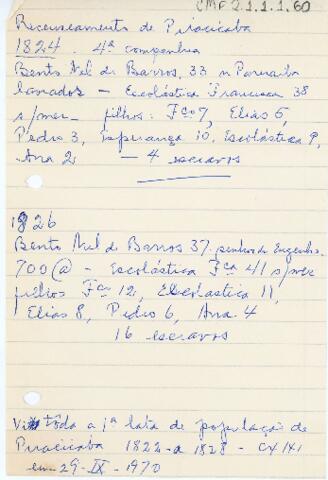 CMF 2.1.1.1.60
Recenseamento de Piracicaba
1824. 4ª companhia
Bento Mel de Barros, 33 n Parnaiba
casados - Escolástica Francisca 38
s/mer filhos: Fco 7, Elias 5,
Pedro 3, Esperança 10, Escolástica 9,
Ana 2, - 4 escravos
1826
Bento Mel de Barros 37 senhor de Engenho
700 @ - Escolástica Fca 41 s/mer
filhos Fco 12, Escolastica 11,
Elias 8, Pedro 6, Ana 4
16 escravos
Vi tôda a 1ª lata de população de
Piracicaba 1822-a 1828 - cx 141
em 29-IX-1970